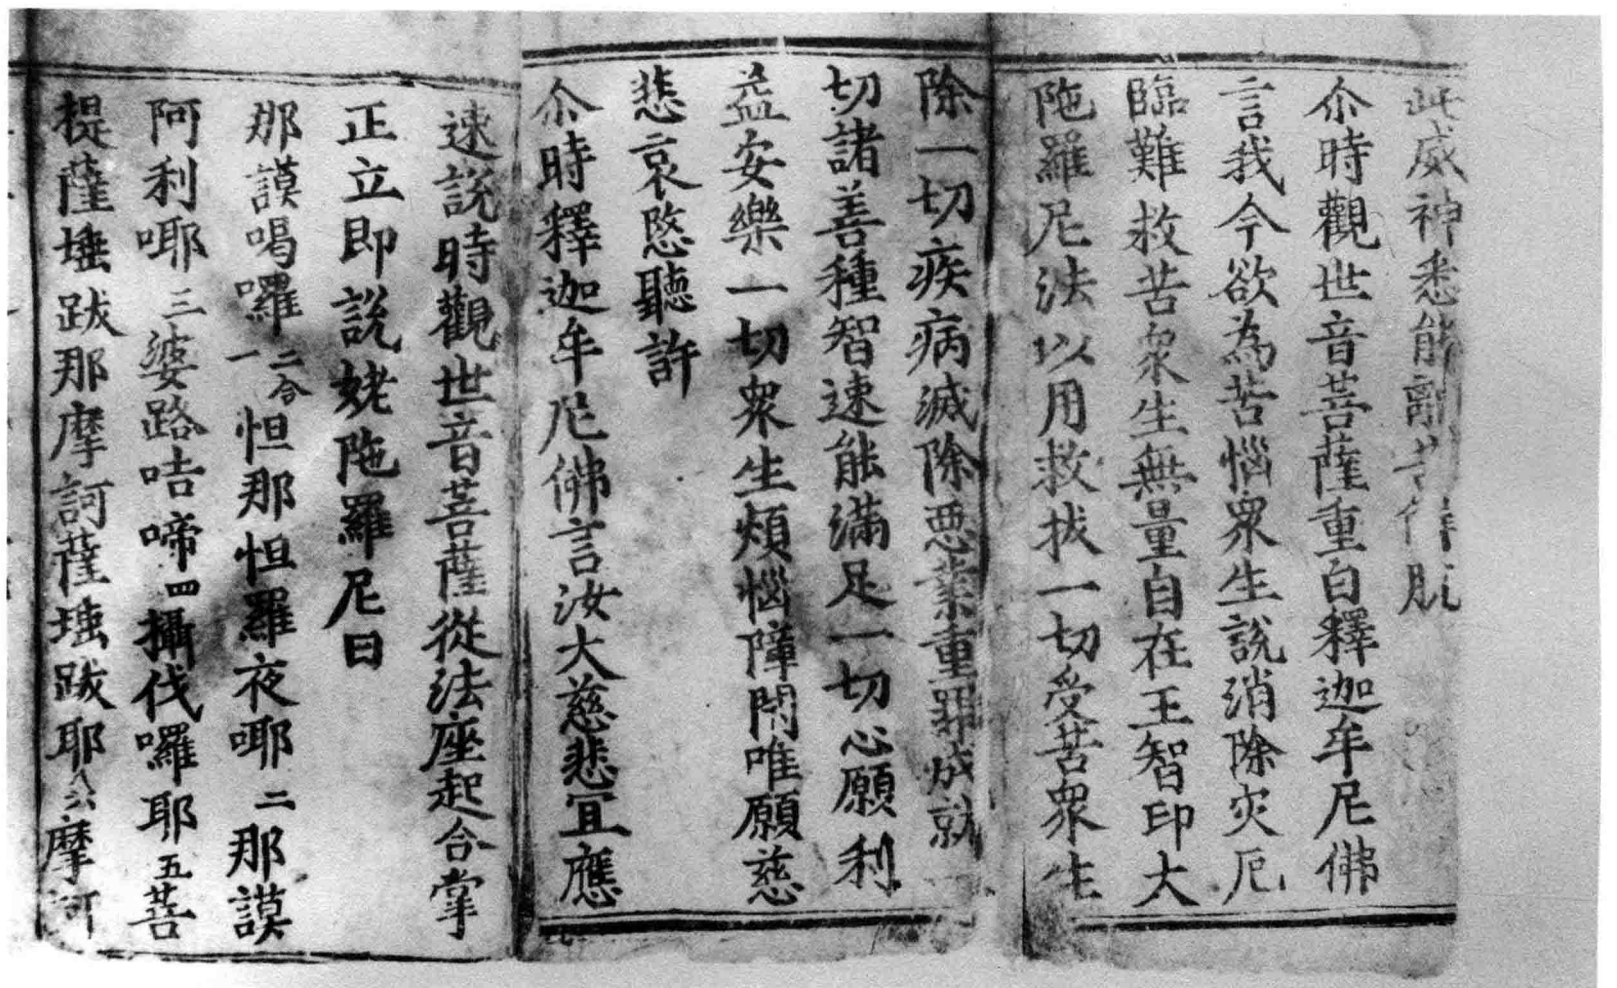 此威神悉能離苦得脫
尒時觀世音菩薩重白釋迦牟尼佛
言我今欲為苦惱眾生說消除灾厄
臨難救苦眾生無量自在王智印大
陁羅尼法以用救拔一切受苦眾生
除一切疾病滅除惡業重罪成就一
切諸善種智速能滿足一切心願利
益安樂一切眾生煩惱障閇唯願慈
悲哀愍聽許
尒時釋迦牟尼佛言汝大慈悲宜應
速說時觀世音菩薩從法座起合掌
正立即說姥陁羅尼曰
那謨喝囉二合一怛那怛羅夜耶二那謨
阿利耶三婆路咭啼四攝伐囉耶五菩
提薩埵跋那摩訶薩埵跋耶六摩訶